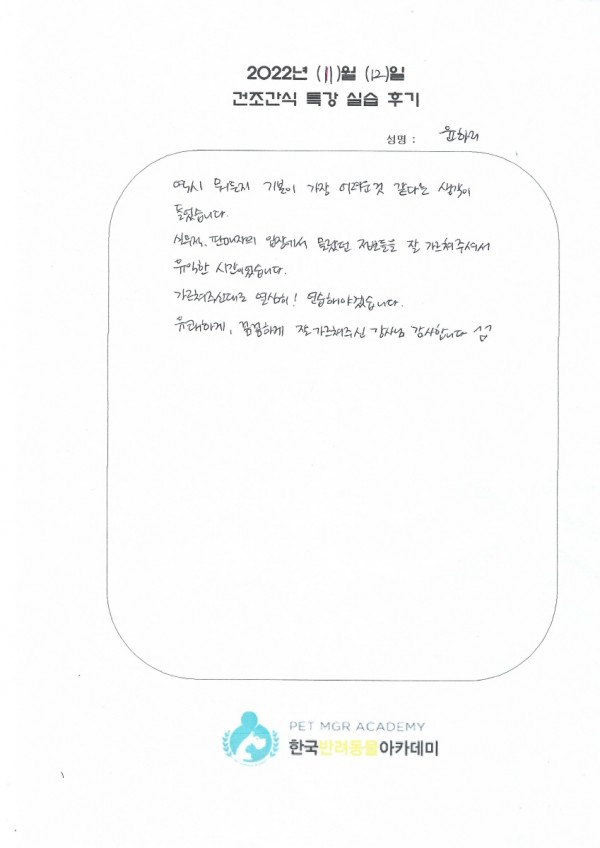 2022년 (11)월 (12)일
건조간식 특강 실습 후기
성명 : 윤하리
역시 뭐든지 기본이 가장 어려운것 같다는 생각이
들었습니다.
실무적, 판매자의 입장에서 몰랐던 저반들을 잘 가르쳐주셔서
유익한 시간이었습니다.
가르쳐주신대로 열심히! 연습해야겠습니다.
유쾌하게, 꼼꼼하게 잘 가르쳐주신 강사님 감사합니다
PET MGR ACADEMY
한국반려동물아카데미